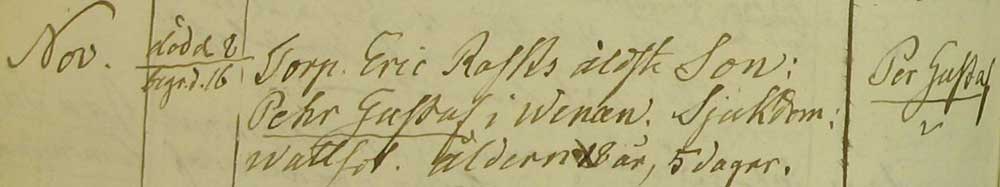 Nov.
död d. 8
begr. d. 16
Torp. Eric Rasks äldste Son:
Pehr Gustaf i Wenan. Sjukdom:
Wattsot. åldern 18 år, 5 dagar.
Per Gustaf